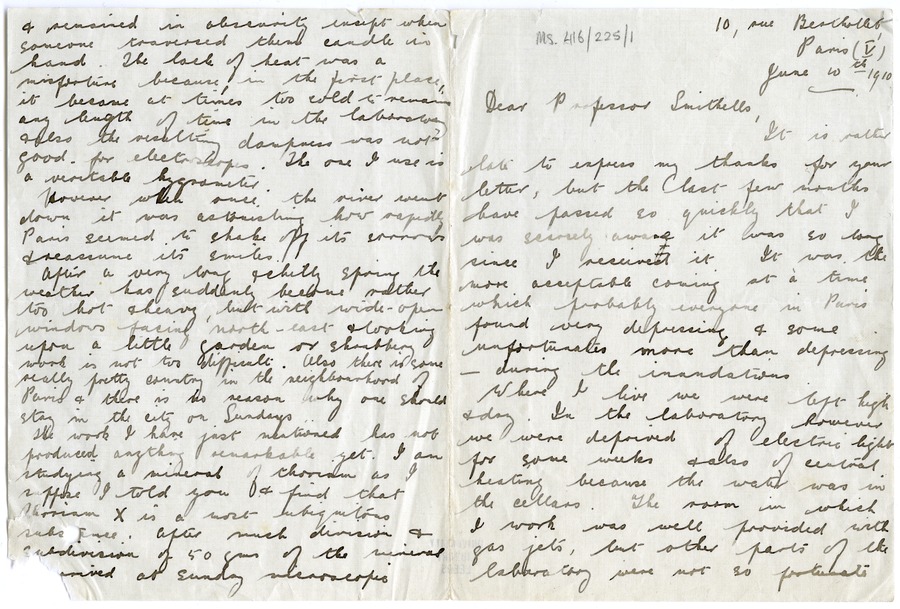 Ms. 416/225/1
10, rue Berthollet,
Paris (V)
June 10th 1910
Dear Professor Smithells,
It is rather
late to express my thanks for your
letter, but the last few months
have passed so quickly that I
was scarcely aware it was so long
since I received it. It was the
more acceptable coming at a time
which probably everyone in Paris
found very depressing & some
unfortunates more than depressing
– during the inundations
Where I live we were left high
& dry. In the laboratory however
we were deprived of electric light
for some weeks & also of central
heating because the water was in
the cellars. The room in which
I work was well provided with
gas jets, but other parts of the
laboratory were not so fortunate
& remained in obscurity except when
someone traversed them candle in
hand. The lack of heat was a
misfortune because, in the first place,
it became at times too cold to remain
any length of time in the laboratory
& also the resulting dampness was not
good for electroscopes. The one I use is
a veritable hygrometer.
However when once the river went
down it was astonishing how rapidly
Paris seemed to shake off its sorrows
& reassume its smiles.
After a very long & chilly spring the
weather has suddenly become rather
too hot & heavy, but with wide-open
windows facing north-east & looking
upon a little garden or shrubbery
work is not too difficult. Also there is some
really pretty country in the neighbourhood of
Paris & there is no reason why one should
stay in the city on Sundays
The work I have just mentioned has not
produced anything remarkable yet. I am
studying a mineral of thorium as I
suppose I told you & find that
Thorium X is a most ubiquitous
substance. After much division &
subdivision of 50 gms of the mineral
arrived at sundry microscopic